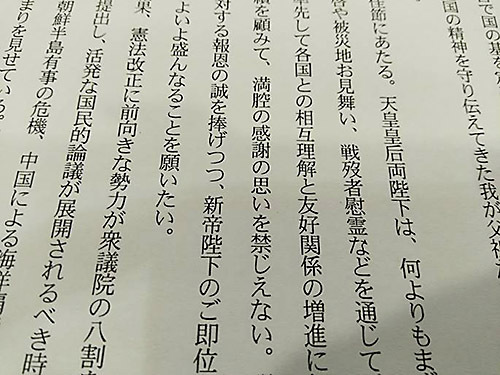 で国の基を
国の精神を守り伝えてきた我が父祖
佳節にあたる。天皇皇后両陛下は、何よりもまず
や被災地お見舞い、戦歿者慰霊などを通じて
率先して各国との相互理解と友好関係の増進に
を顧みて、満腔の感謝の思いを禁じえない。
対する報恩の誠を捧げつつ、新帝陛下のご即位
よいよ盛んなることを願いたい。
果、憲法改正に前向きな勢力が衆議院の八割
提出し、活発な国民的論議が展開されるべき時
朝鮮半島有事の危機、中国による海洋
まりを見せている。